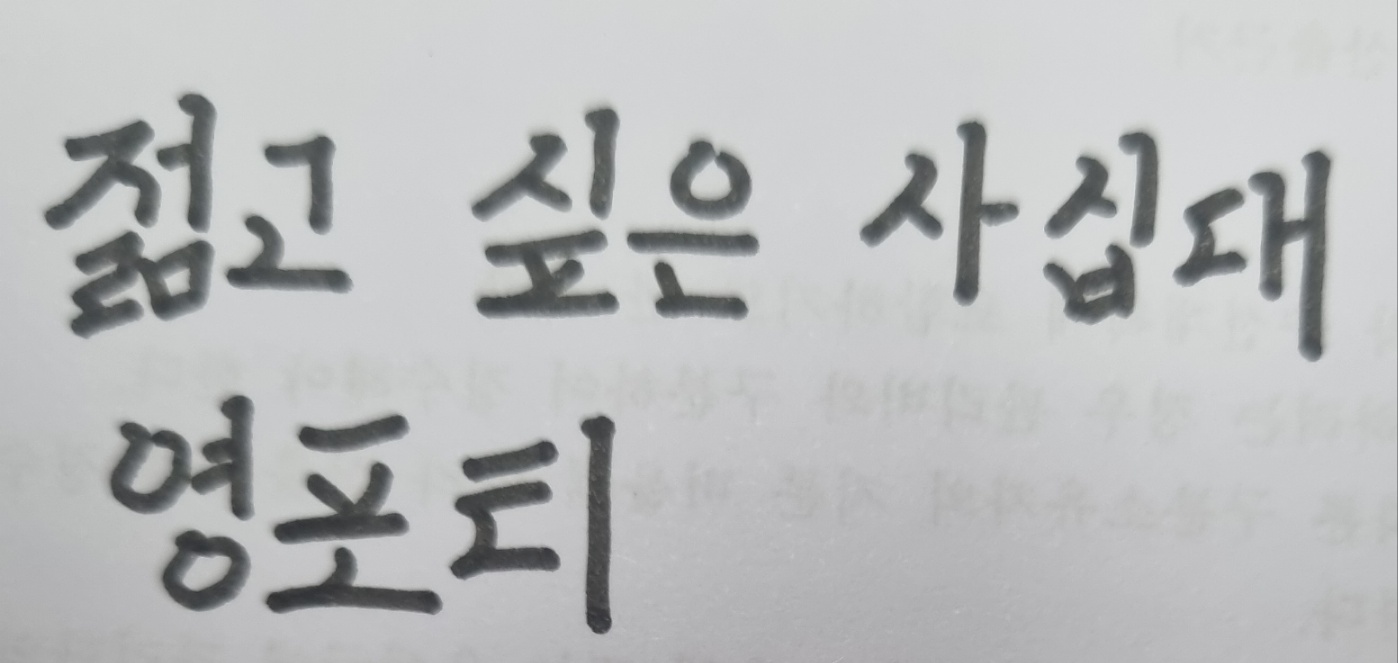 젊고 싶은 사십대
영포티